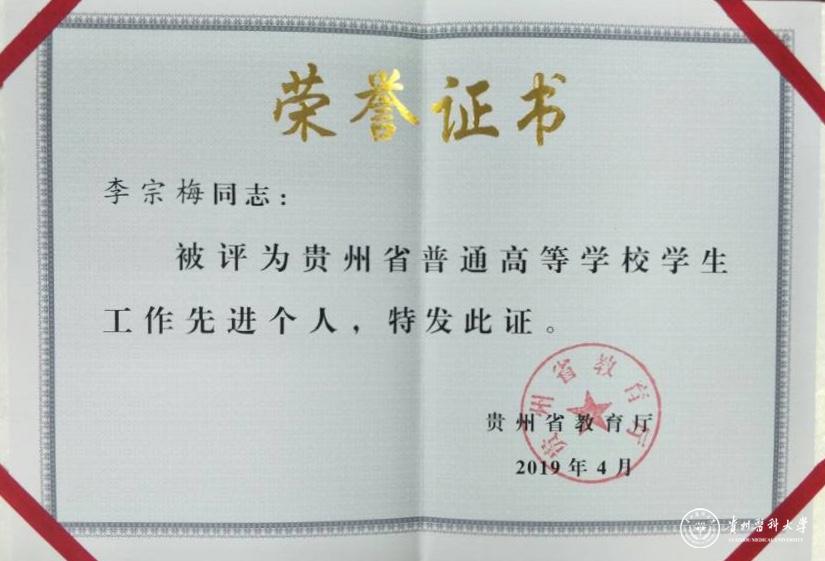 荣誉证书
李宗梅同志：
被评为贵州省普通高等学校学生
工作先进个人，特发此证。
贵州省教育厅
贵州省教育厅
2019年4月
贵州医科大学
GUIZHOU MEDICAL UNIVERSITY